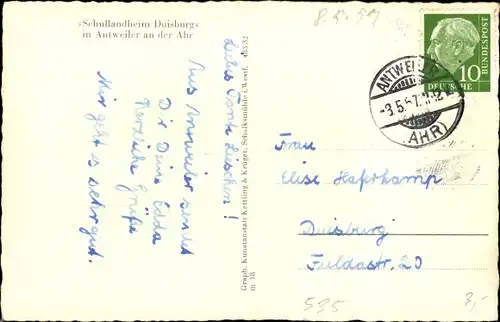 »Schullandheim Duisburg«
in Antweiler an der Ahr
8.5.57
Liebes Tante Lieschen!
Aus Antweiler sendet
Dir Deine Edda
herzliche Grüße
Mir geht es sehr gut.
Graph. Kunstanstalt Kettling & Krüger, Schalksmühle i. Westf. 48532
m 18
10
DEUTSCHE
BUNDESPOST
ANTWEILER
-8.5.57.
(AHR)
Frau
Elise Haferkamp
Duisburg
Fuldastr. 20
535
3,-